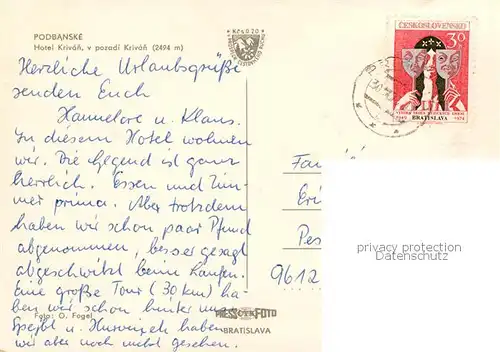 PODBANSKÉ
Hotel Kriváň, v pozadí Kriváň (2494 m)
Kčs 0,20
ČESKOSLOVENSKO
30
BRATISLAVA
1949 1974
Herzliche Urlaubsgrüße
senden Euch
Hannelore u. Klaus.
In diesem Hotel wohnen
wir. Die Gegend ist ganz
herrlich. Essen und Zim-
mer prima. Aber trotzdem
haben wir schon paar Pfund
abgenommen, besser gesagt
abgeschwitzt beim Laufen.
Eine große Tour (30 km) ha-
ben wir schon hinter uns
Spejbl u. Hurvinek haben
wir aber noch nicht gesehen.
Foto: O. Fogel
PRESSFOTO
BRATISLAVA
Fam
Eri
Pes
9612
privacy protection
Datenschutz